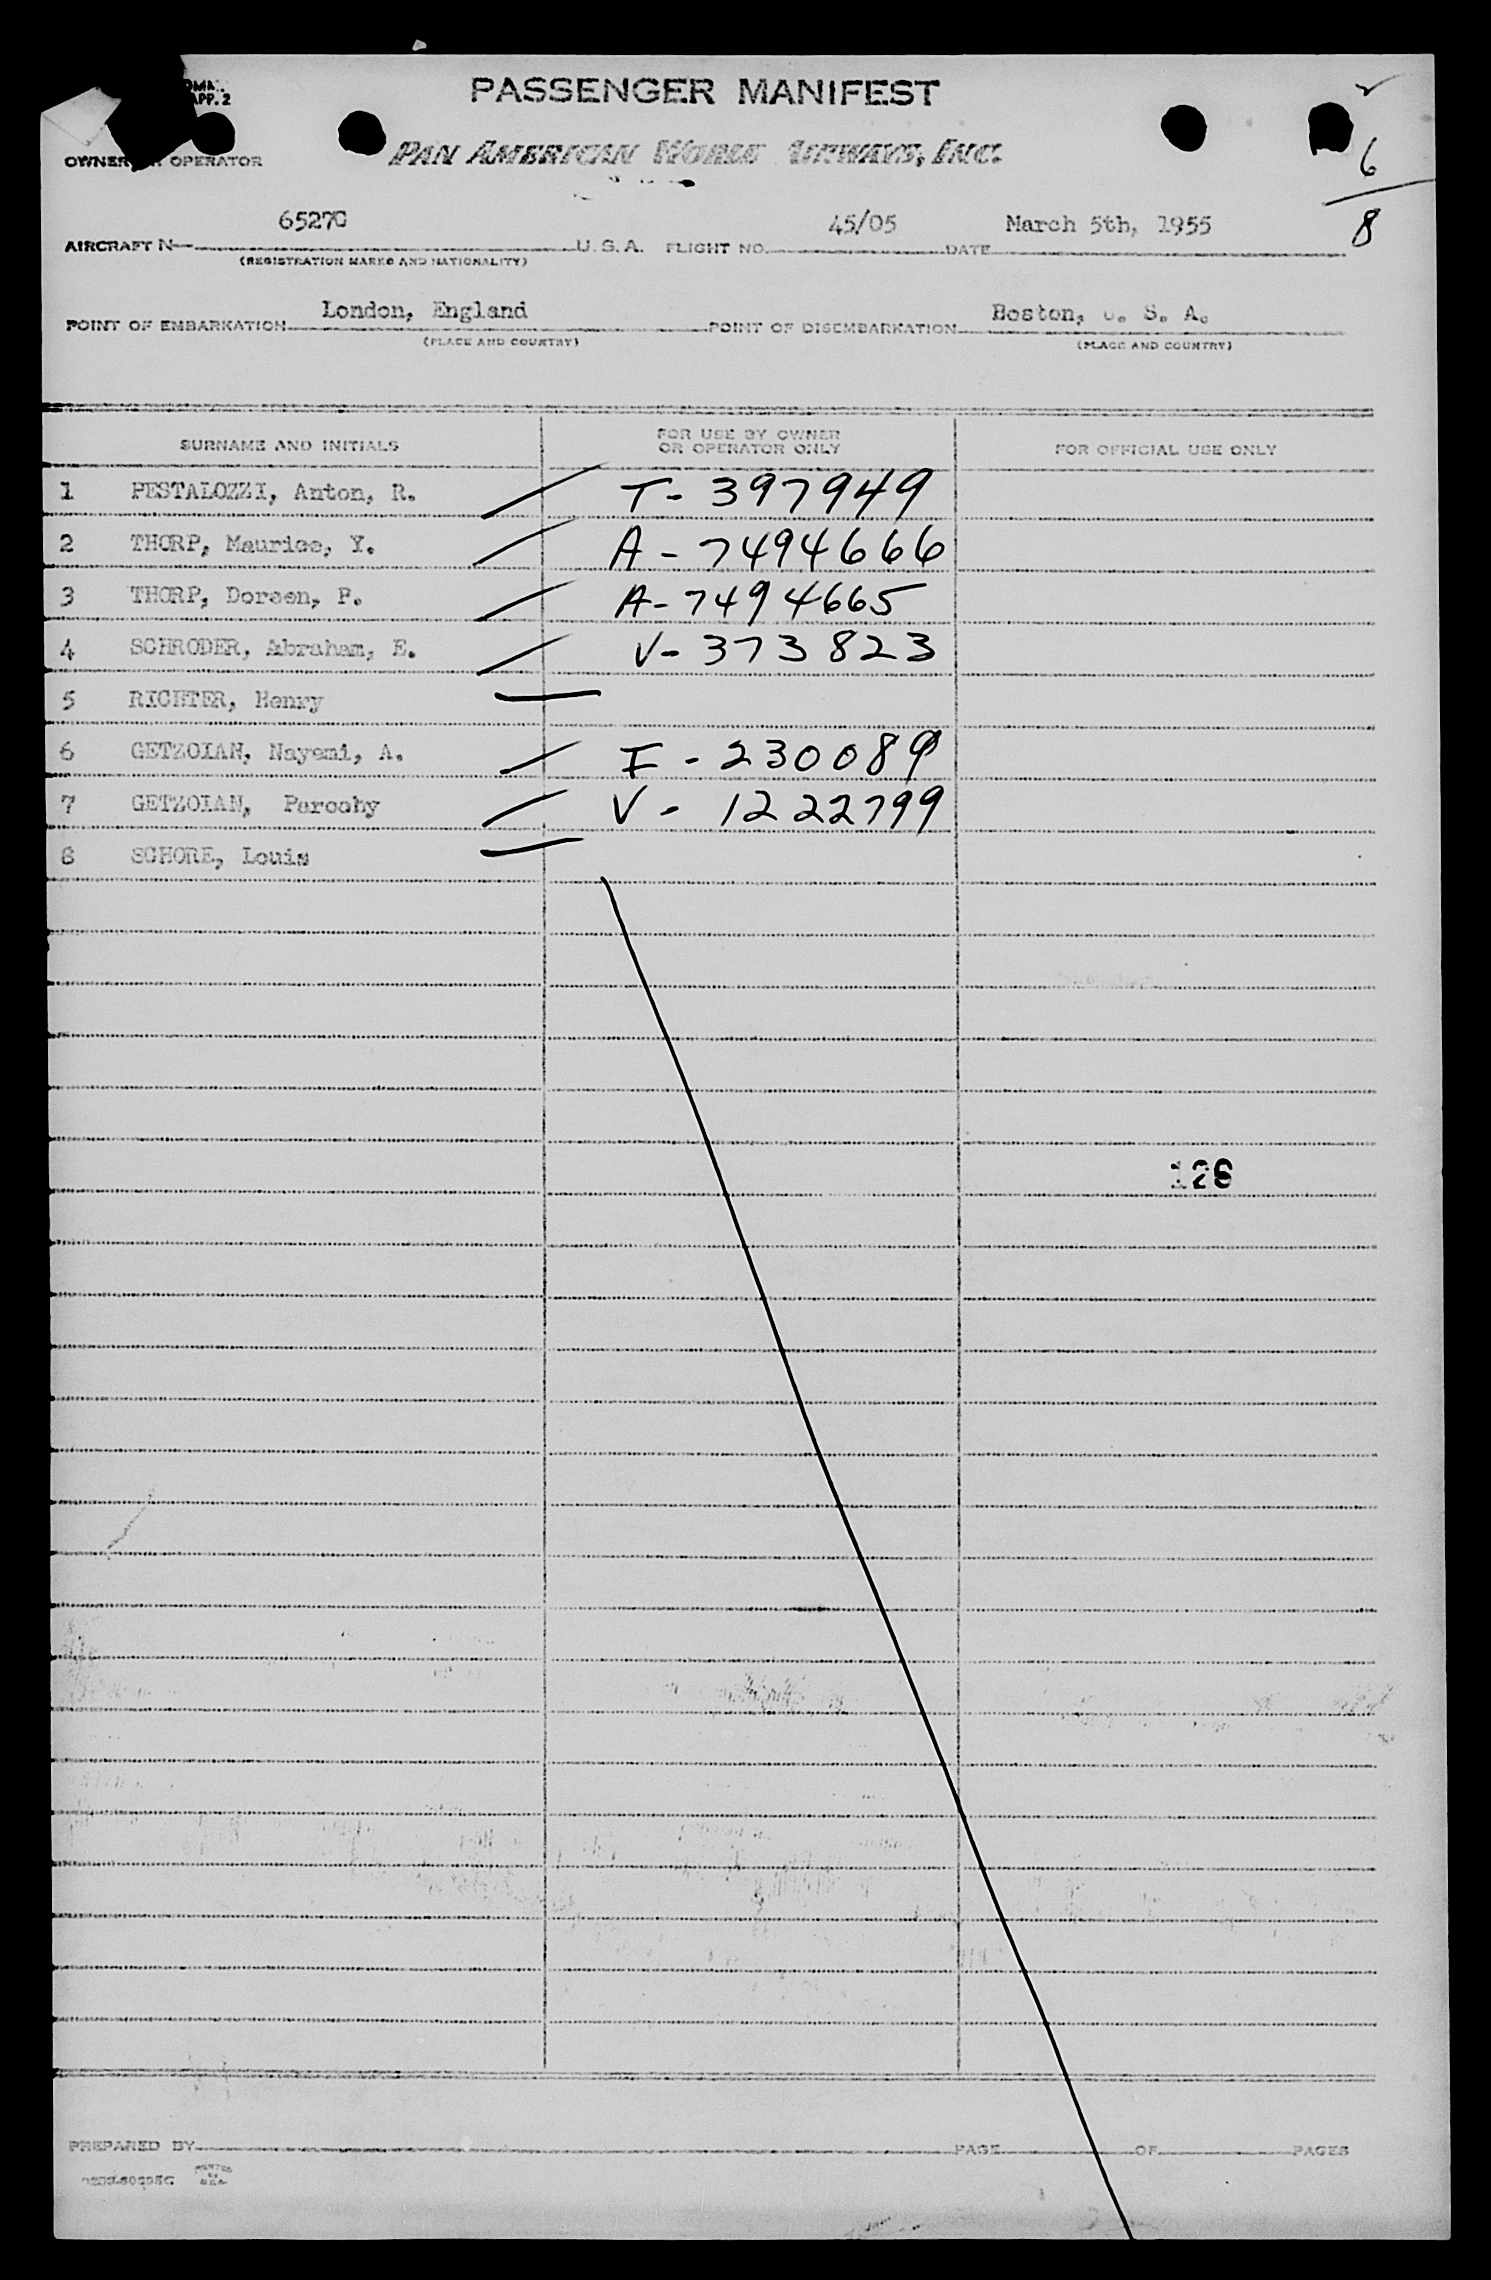 PASSENGER MANIFEST
APP. 2
OWNER OR OPERATOR PAN AMERICAN WORLD AIRWAYS, INC.
2
6
8
AIRCRAFT N- 65270 U.S.A. FLIGHT NO. 45/05 DATE March 5th, 1955
(REGISTRATION MARKS AND NATIONALITY)
POINT OF EMBARKATION London, England POINT OF DISEMBARKATION Boston, U. S. A.
(PLACE AND COUNTRY) (PLACE AND COUNTRY)
SURNAME AND INITIALS FOR USE BY OWNER OR OPERATOR ONLY FOR OFFICIAL USE ONLY
1 PESTALOZZI, Anton, R. T- 397949
2 THORP, Maurice, Y. A - 7494666
3 THORP, Doreen, P. A- 7494665
4 SCHRODER, Abraham, E. V- 373823
5 RICHTER, Henry
6 GETZOIAN, Nayemi, A. I - 230089
7 GETZOIAN, Paroohy V - 1222799
8 SCHORE, Louis
128
PREPARED BY PAGE OF PAGES
PRINTED IN U.S.A.